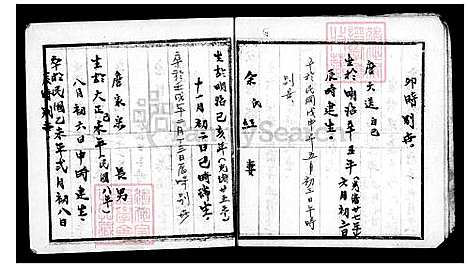 卯時別世
唐大送 自己
生於明治辛丑年(光緒廿七年)六月初二日
辰時建生
卒於民國戊申年五月初三日午時
別世
余氏經 妻
生於明治己亥年(光緒廿五年)
十一月初二日巳時瑞生
卒於壬戌年 月十三日 時別世
唐永 長男
生於大正己未年(民國八年)
八月初六日申時建生
卒於民國乙未年弍月初八日
辰時別世
FamilySearch